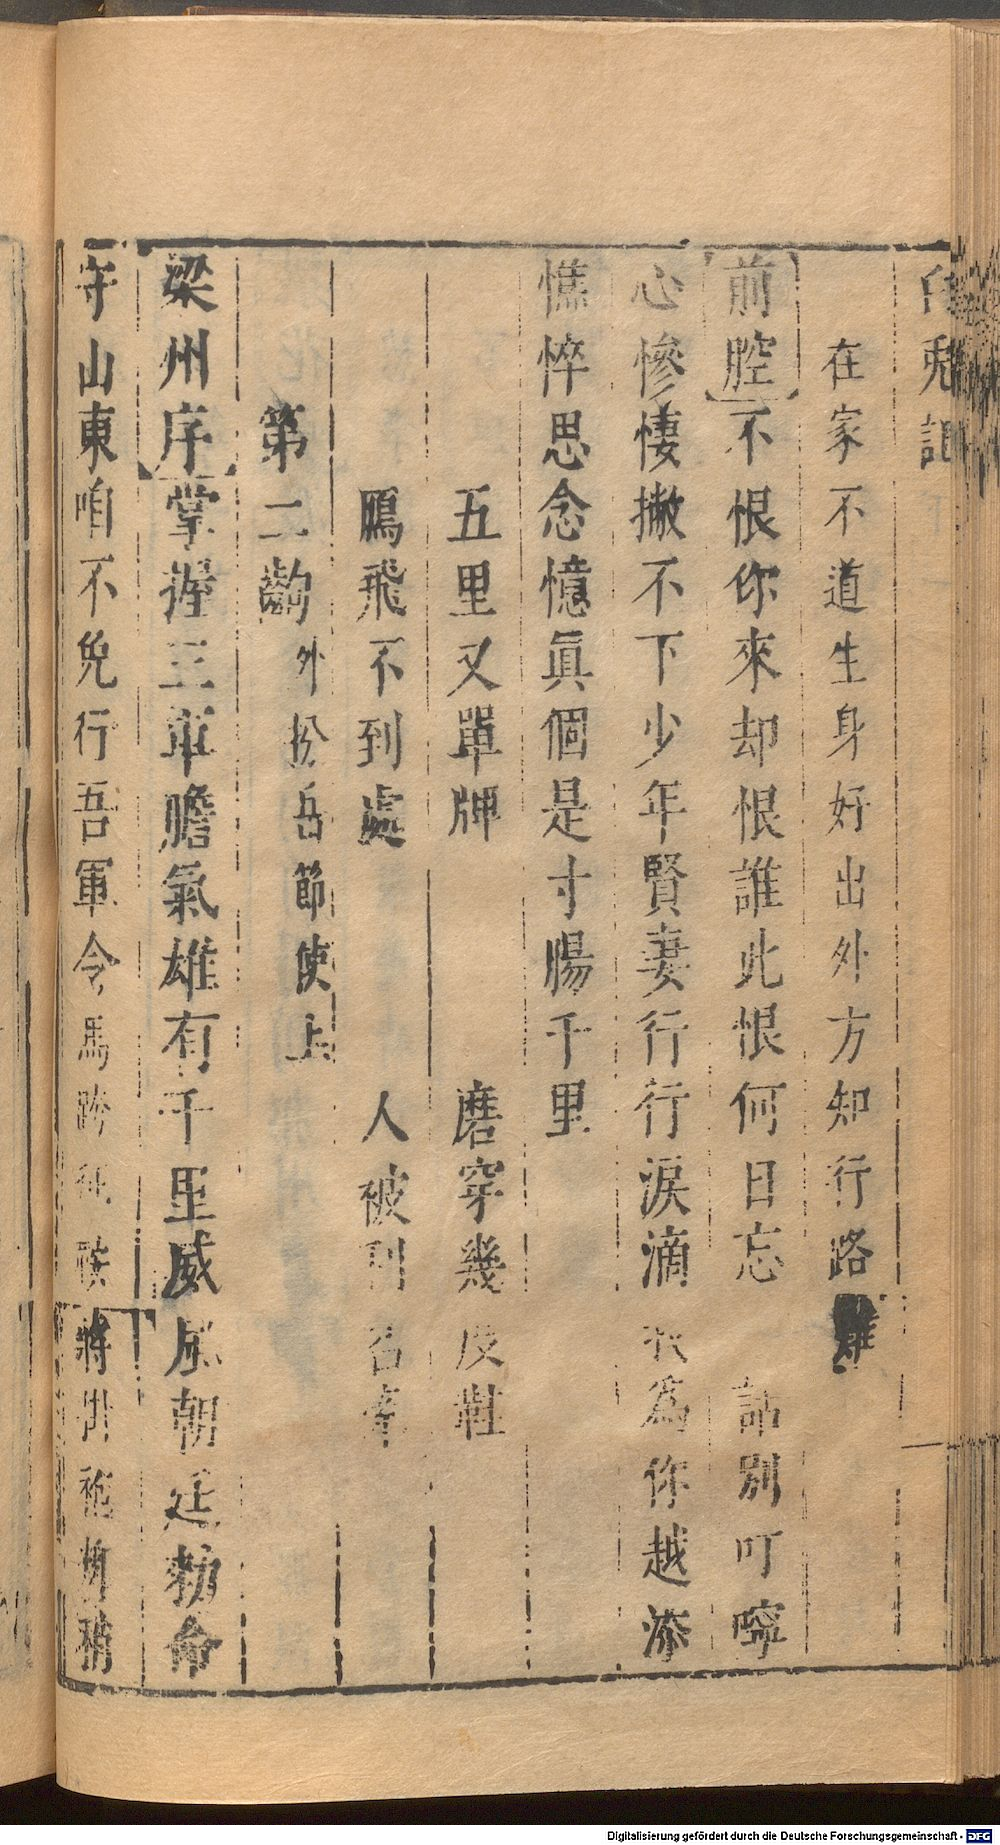 白兎記
在家不道生身好出外方知行路難
前腔不恨你來却恨誰此恨何日忘話別叮嚀
心慘悽撇不下少年賢妻行行淚滴 為你越添
憔悴思念憶眞個是寸腸千里
五里又單牌 磨穿幾皮鞋
鵰飛不到處 人被利名牽
第二齣外扮岳節使上
梁州序掌握三軍膽氣雄有千里威風朝廷勅命
守山東咱不免行吾軍令馬跨 將 袍 稍
Digitalisierung gefördert durch die Deutsche Forschungsgemeinschaft - DFG